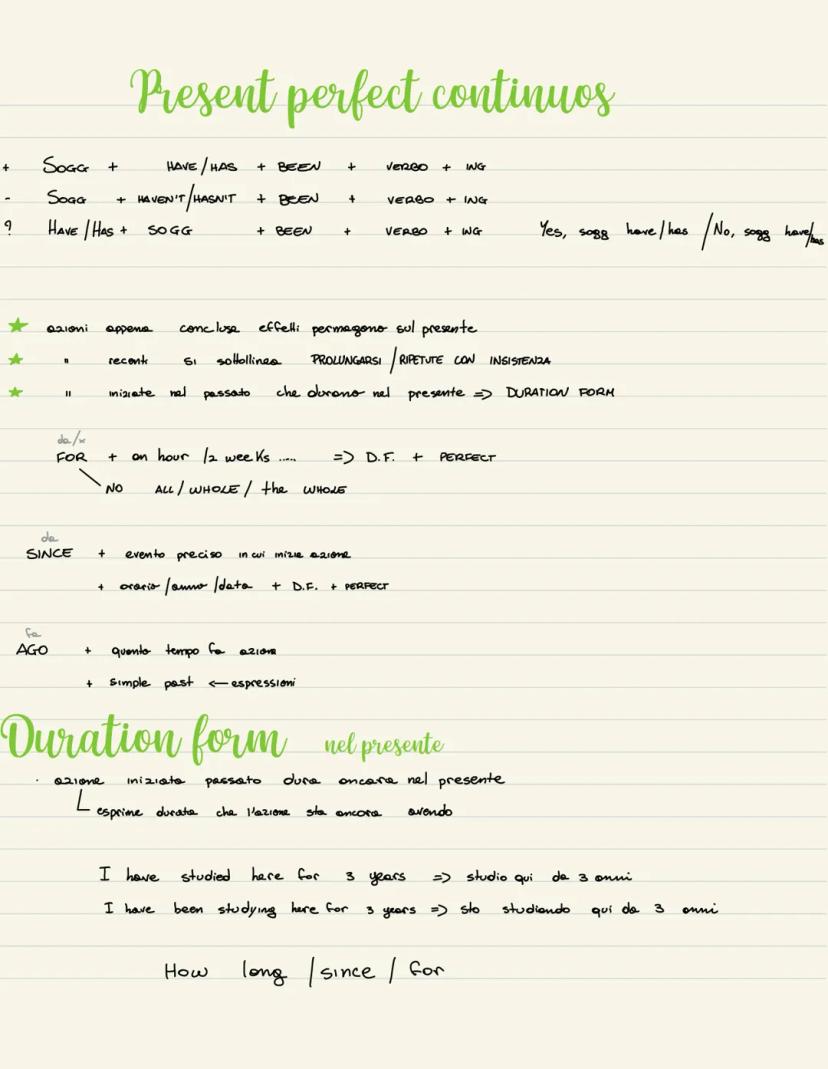 Present perfect continuos
+ SOGG + HAVE/HAS + BEEN + VERBO + ING
- SOGG + HAVEN'T/HASN'T + BEEN + VERBO + ING
? HAVE/HAS + SOGG + BEEN + VERBO + ING Yes, sogg have/has /No, sogg have/has
★ azioni appena concluse effetti permagono sul presente
★ " recenti si sottolinea PROLUNGARSI/RIPETUTE CON INSISTENZA
★ " iniziate nel passato che durano nel presente => DURATION FORM
da/x
FOR + an hour /2 weeks ..... => D.F. + PERFECT
NO ALL/WHOLE/the WHOLE
da
SINCE + evento preciso in cui inizia azione
+ orario/anno/data + D.F. + PERFECT
fa
AGO + quanto tempo fa azione
+ simple past <- espressioni
Duration form nel presente
· azione iniziata passato dura ancora nel presente
esprime durata che l'azione sta ancora avendo
I have studied here for 3 years => studio qui da 3 anni
I have been studying here for 3 years => sto studiando qui da 3 anni
How long /since / for